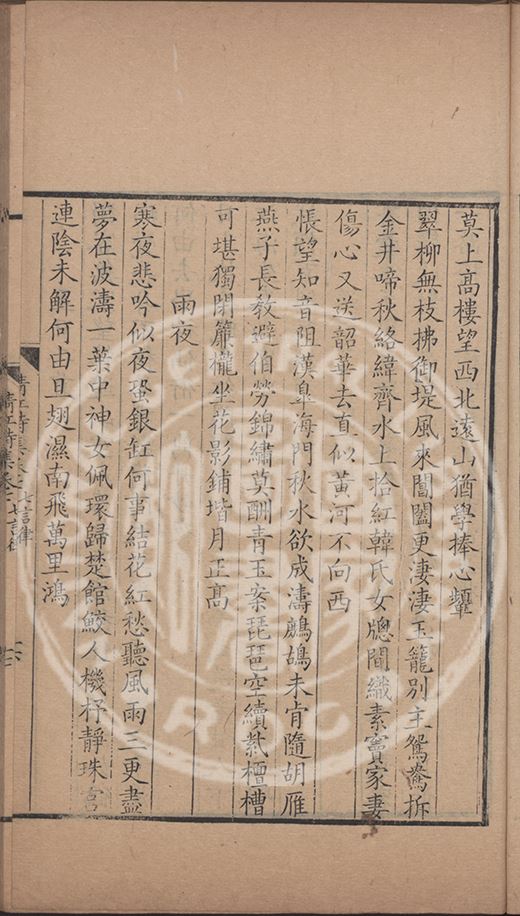 莫上高樓望西北遠山猶學捧心顰
翠柳無枝拂御堤風來閶闔更淒淒玉籠別主鴛鴦拆
金井啼秋絡緯齊水上拾紅韓氏女牕間織素竇家妻
傷心又送韶華去直似黃河不向西
悵望知音阻漢皐海門秋水欲成濤鷓鴣未肯隨胡雁
燕子長教避伯勞錦繡莫酬青玉案琵琶空續紫檀槽
可堪獨閉簾櫳坐花影鋪堦月正高
雨夜
寒夜悲吟似夜蛩銀缸何事結花紅愁聽風雨三更盡
夢在波濤一葉中神女佩環歸楚館鮫人機杼靜珠宮
連陰未解何由旦翅濕南飛萬里鴻
清江詩集卷之七言律